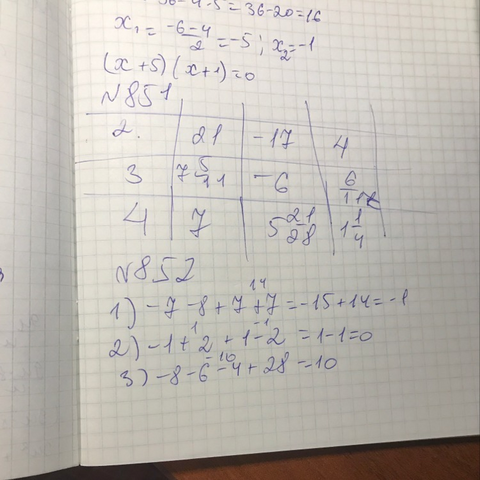 36-4·5=36-20=16
x₁ = (-6-4)/2 = -5; x₂=-1
(x+5)(x+1)=0
№851
2. 21 -17 4
3 7 5/11 -6 6/11
4 7 5 21/28 1 1/4
№852
14
1) -7-8+7+7=-15+14=-1
1 -1
2) -1+2+1-2=1-1=0
-10
3) -8-6-4+28=10